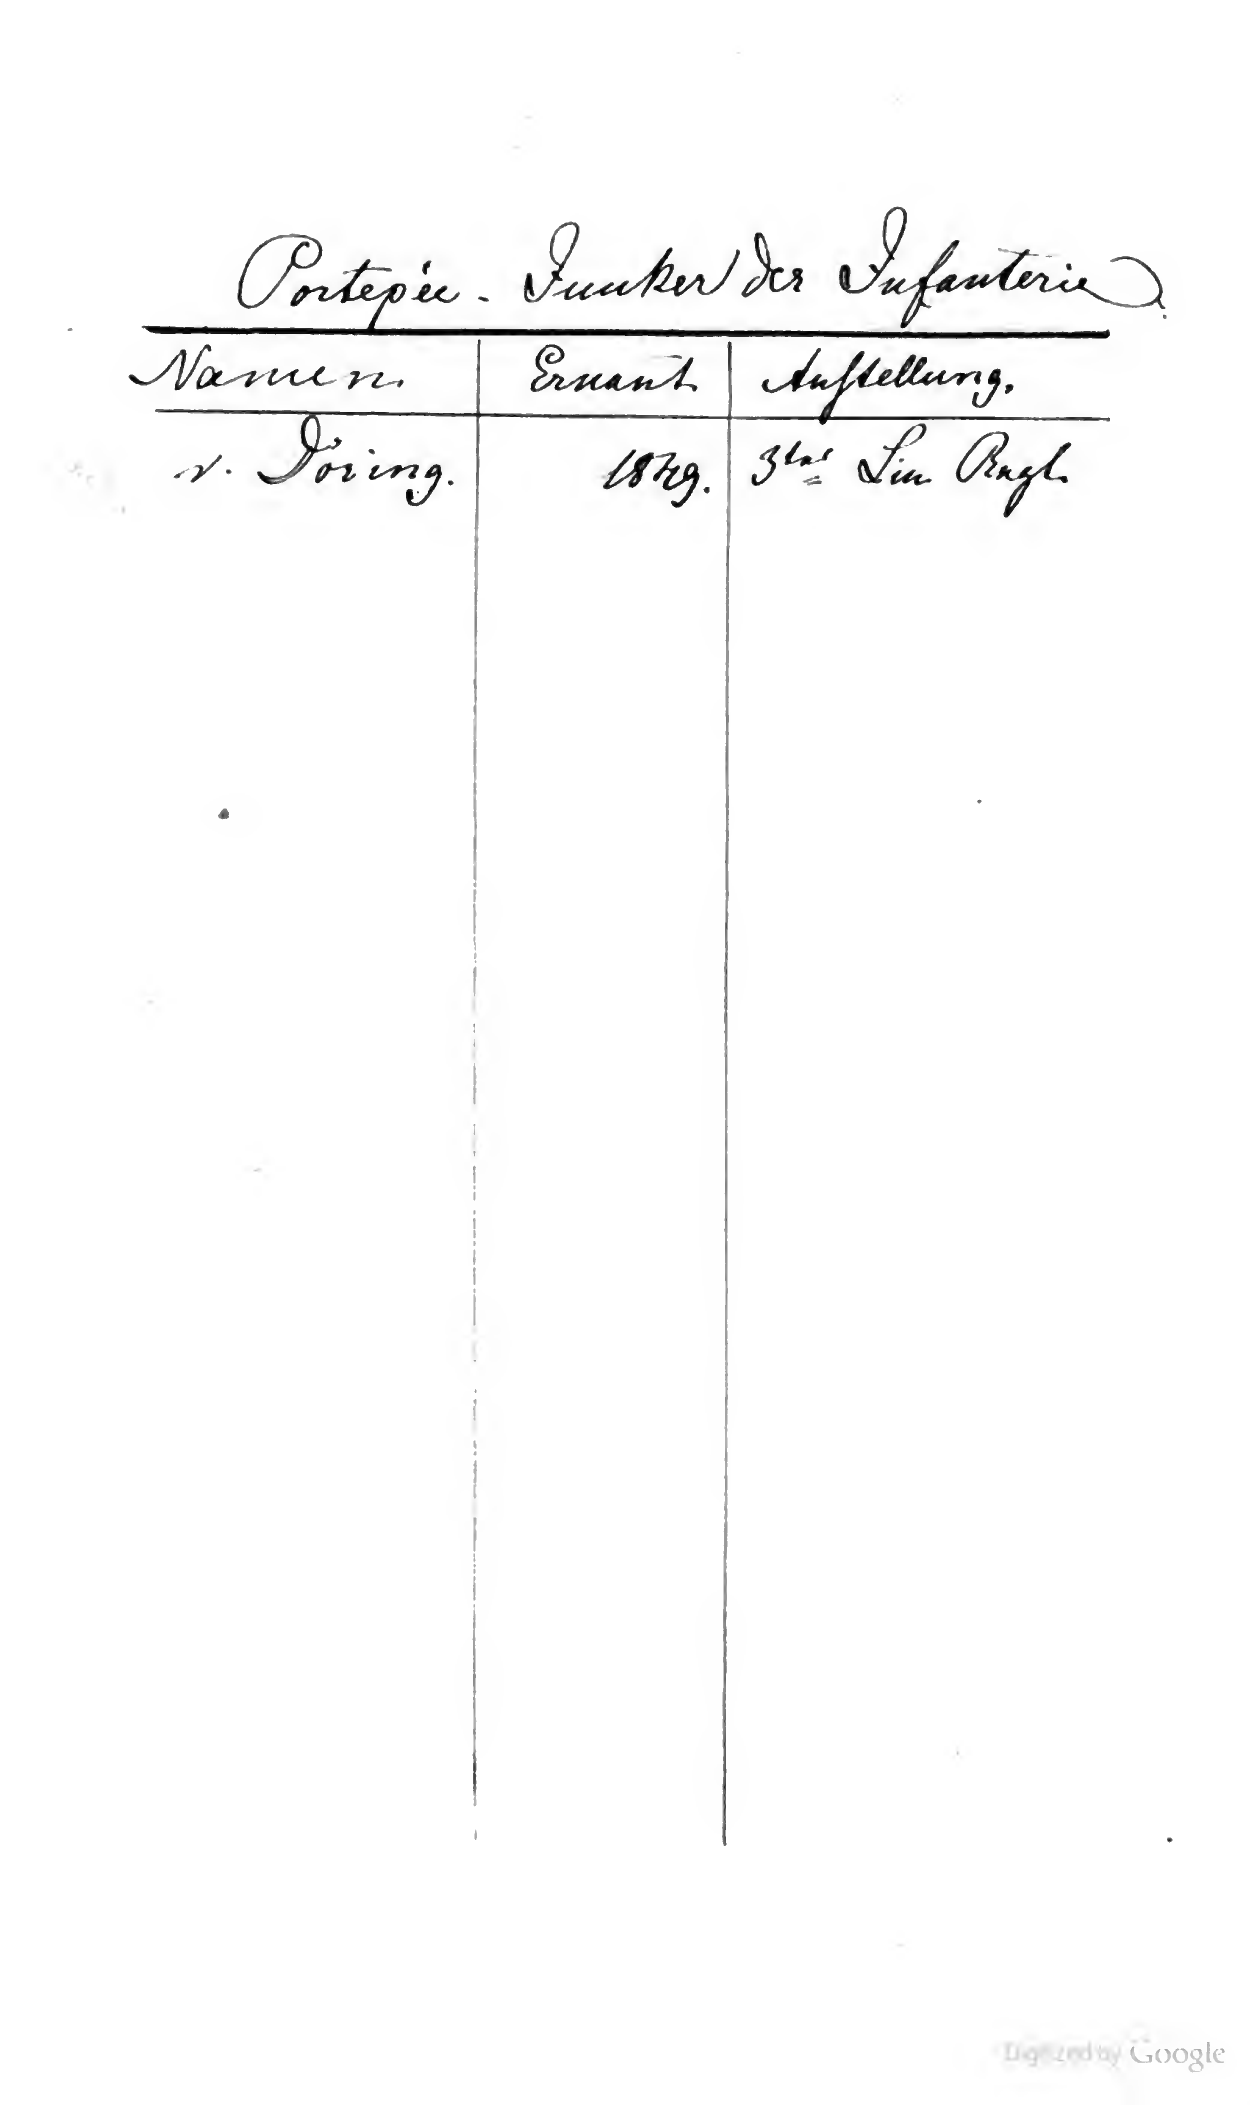 Portepée-Junker der Infanterie
Namen. Ernant. Anstellung.
v. Döring. 1849. 3tes Lin. Regt.
Digitized by Google